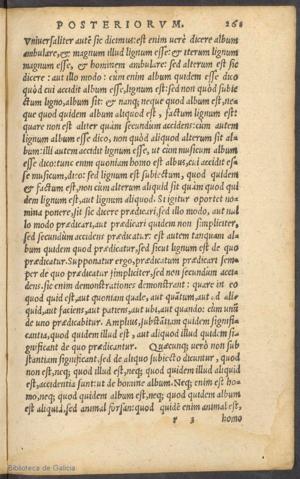 POSTERIORVM. 268
Vniuersaliter autē sic dicimus: est enim verè dicere album
ambulare, & magnum illud lignum esse: & iterum lignum
magnum esse, & hominem ambulare: sed alterum est sic
dicere: aut illo modo: cùm enim album quidem esse dico
quòd cui accidit album esse, lignum est: sed non quòd subie
ctum ligno, album sit: & nanq; neque quod album est, ne
que quod quidem album aliquod est, factum lignum est:
quare non est aliter quàm secundum accidens: cùm autem
lignum album esse dico, non quòd aliquod alterum sit al-
bum: illi autem accidit lignum esse, vt cùm musicum album
esse dico: tunc enim quoniam homo est albus, cui accidit es-
se musicum, dico: sed lignum est subiectum, quod quidem
& factum est, non cùm alterum aliquid sit quàm quod qui
dem lignum est, aut lignum aliquod. Si igitur oportet no-
mina ponere, sit sic dicere prædicari, sed illo modo, aut nul
lo modo prædicari, aut prædicari quidem non simpliciter,
sed secundum accidens prædicatur: est autem tanquam al-
bum quidem quod prædicatur, sed sicut lignum est de quo
prædicatur. Supponatur ergo, prædicatum prædicari sem-
per de quo prædicatur simpliciter, sed non secundum acci-
dens. sic enim demonstrationes demonstrant: quare in eo
quod quid est, aut quoniam quale, aut quātum, aut ad ali-
quid, aut faciens, aut patiens, aut vbi, aut quando: cùm unū
de uno prædicabitur. Amplius, substātiam quidem signifi-
cantia, quod quidem illud est, aut aliquod illud quidem si-
gnificant de quo prædicantur. Quæcunq; verò non sub
stantiam significant, sed de aliquo subiecto dicuntur, quod
non est, neq; quod illud est, neq; quod quidem illud aliquid
est, accidentia sunt: ut de homine album. Neq; enim est ho-
mo, neq; quod quidem album est, neq; quod quidem album
est aliquid, sed animal forsan: quod quidē enim animal est,
r 3 homo
Biblioteca de Galicia